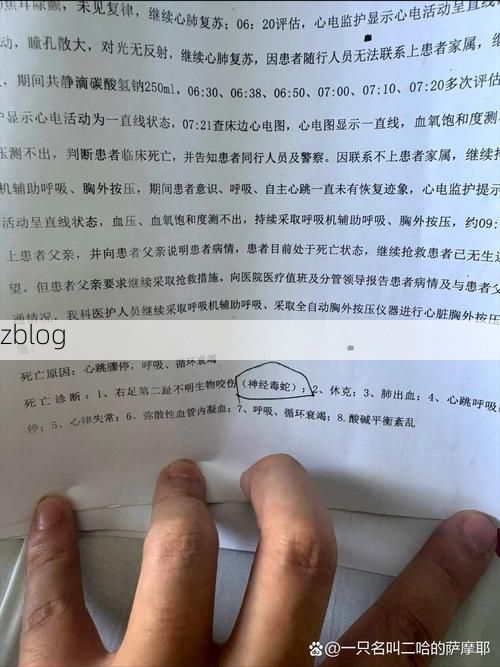 焦耳除颤，未见复律，继续心肺复苏；06：20评估，心电监护显示心电活动呈直线
动，瞳孔散大，对光无反射，继续心肺复苏，因患者随行人员无法联系上患者家属，继
，期间共静滴碳酸氢钠250ml，06:30、06:38、06:50、07:00、07:10、07:20多次评估
显示心电活动为一直线状态，07:21查床边心电图，心电图显示一直线，血氧饱和度测
压测不出，判断患者临床死亡，并告知患者同行人员及警察。因联系不上患者家属，继续
机辅助呼吸、胸外按压，期间患者意识、呼吸、自主心跳一直未有恢复迹象，心电监护提示
活动呈直线状态，血压、血氧饱和度测不出，持续采取呼吸机辅助呼吸、胸外按压，约09:
上患者父亲，并向患者父亲说明患者病情，患者目前处于死亡状态，继续抢救患者已无生
望，但患者父亲要求继续采取抢救措施。向医院医疗值班及分管领导报告患者病情及与患者父
通情况，我科医护人员继续采取呼吸机辅助呼吸、采取全自动胸外按压仪器进行心脏胸外按压
zblog
死亡原因：心跳骤停，呼吸、循环衰竭
死亡诊断：1、右足第二趾不明生物咬伤（神经毒蛇）；2、休克；3、肺出血；4、心跳呼吸
停；5、心律失常；6、弥散性血管内凝血；7、呼吸、循环衰竭；8.酸碱平衡紊乱
@一只名叫二哈的萨摩耶